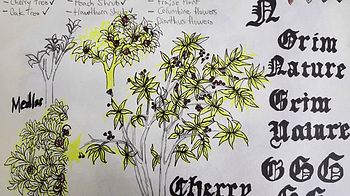 - Cherry Tree ✓
- Oak Tree ✓
- Peach Shrub ✓
- Hawthorn Shrub ✓
- Prairie Plant
- Columbine flowers
Dianthus flowers
Medlar
N
Grim
Nature
Grim
Nature
GGG
Cherry